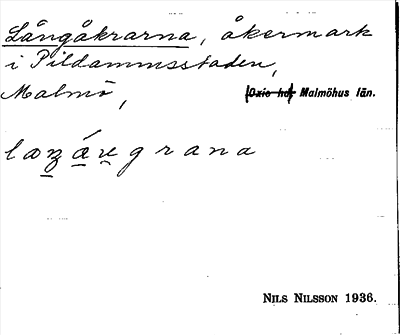 Långåkrarna, åkermark
i Pildammsstaden,
Malmö, (Oxie hd) Malmöhus län.
NILS NILSSON 1936.